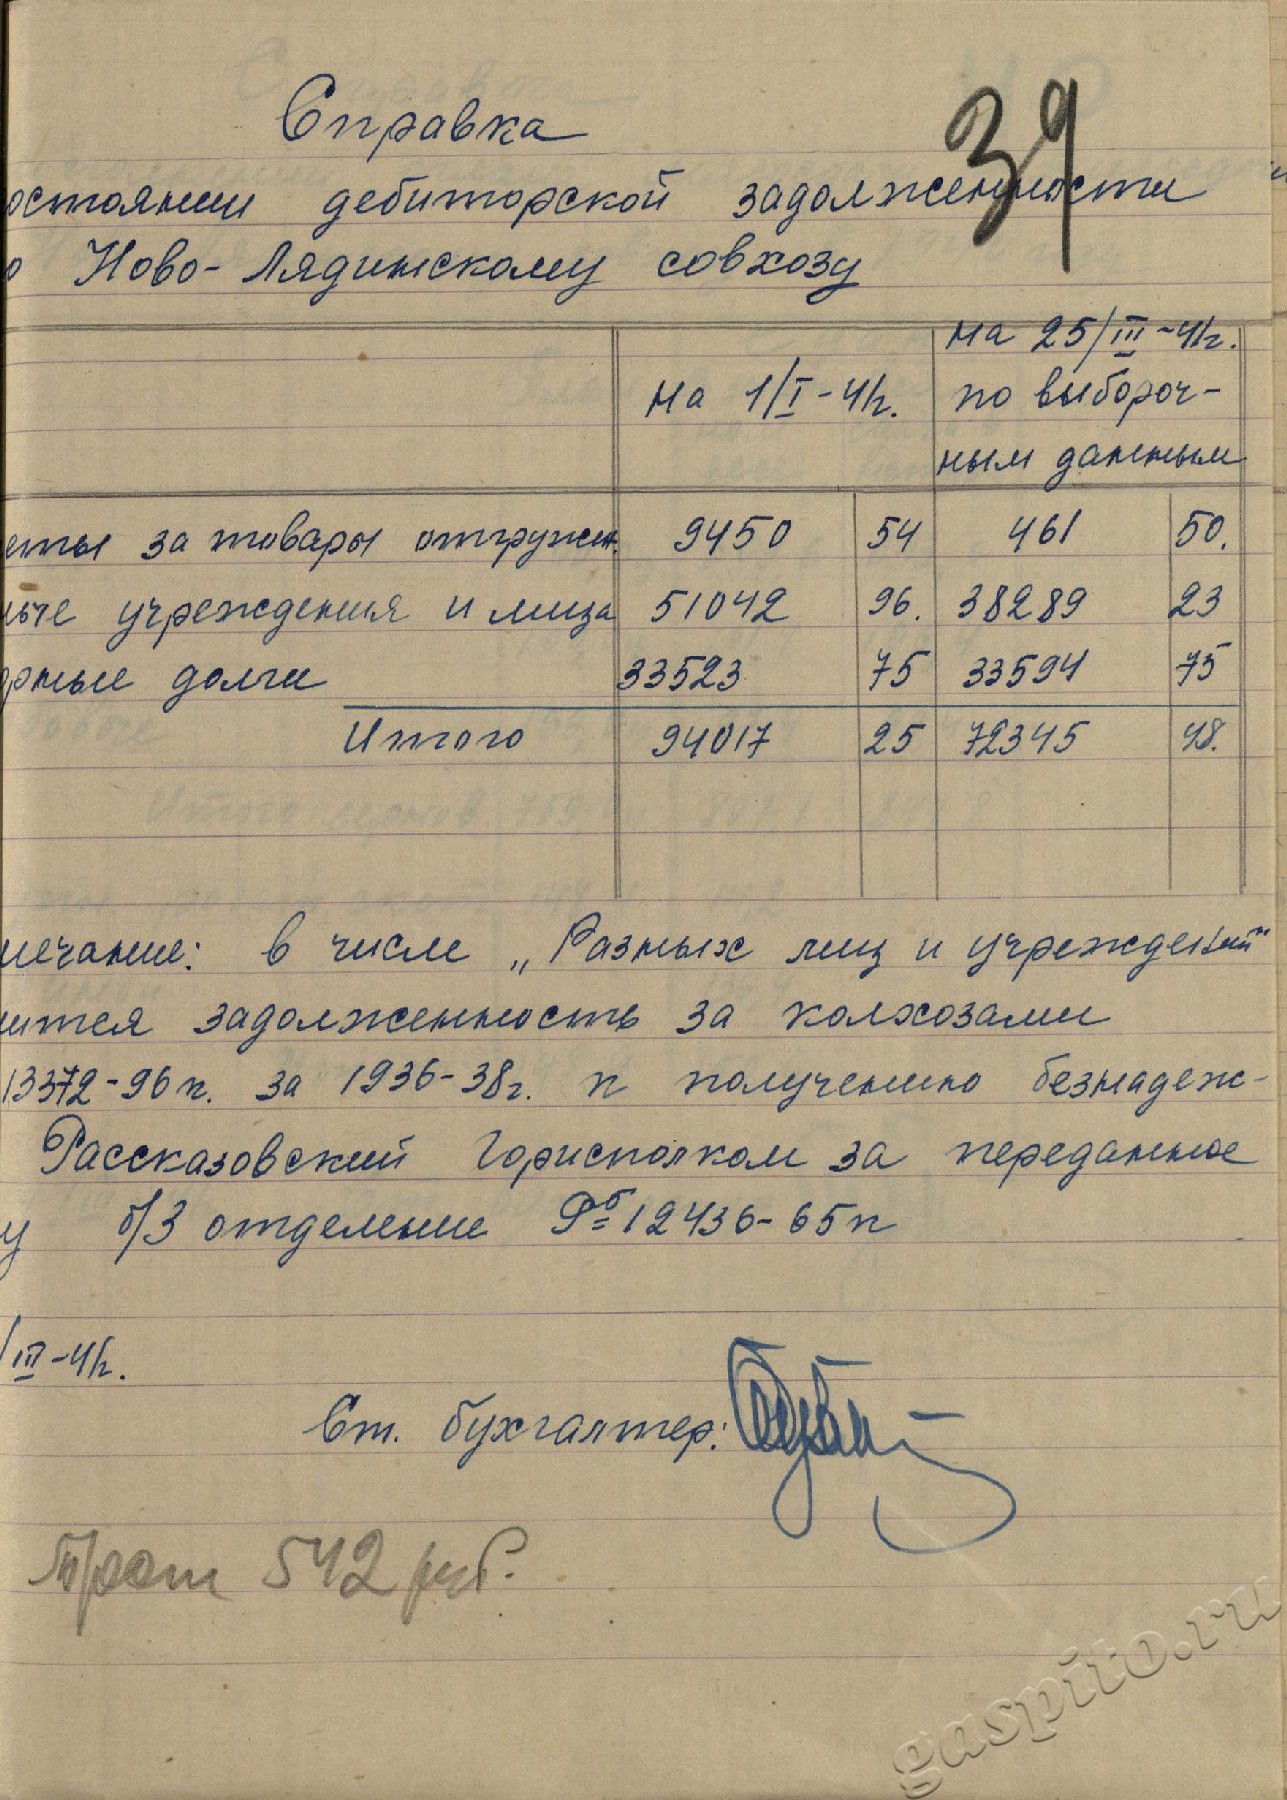 39
Справка
остоянии дебиторской задолженности
о Ново-Лядинскому совхозу
на 1/I-41г.
на 25/III-41г.
по выбороч-
ным данным
еты за товары отгружен. 9450 54 461 50.
ные учреждения и лица 51042 96. 38289 23
орные долги 33523 75 33594 75
Итого 94017 25 72345 48.
мечание: в числе „Разных лиц и учреждений"
ится задолженность за колхозами
13372-96к. за 1936-38г. к получению безнадеж-
Рассказовский Горисполком за переданное
у б/3 отделение Рб 12436-65к
/III-41г.
Ст. бухгалтер:
542 руб.
gaspito.ru